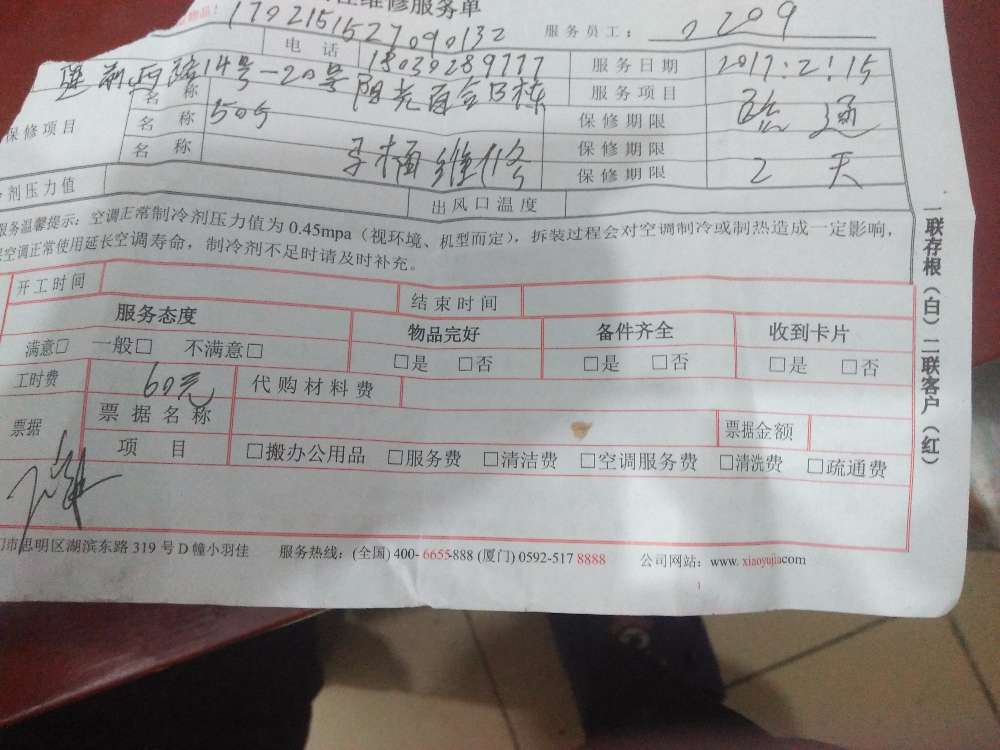 维修服务单
物品: 1702151527090132 服务员工: 0209
电 话 18030289777 服务日期 2017:2!15
14号-20号阳光百合B栋 服务项目
保修项目 名 称 505 保修期限 疏通
名 称 保修期限
名 称 马桶维修 保修期限 2天
剂压力值 出风口温度
服务温馨提示: 空调正常制冷剂压力值为 0.45mpa (视环境、机型而定), 拆装过程会对空调制冷或制热造成一定影响,
空调正常使用延长空调寿命, 制冷剂不足时请及时补充。
开工时间 结束时间
服务态度 物品完好 备件齐全 收到卡片
满意□ 一般□ 不满意□ □是 □否 □是 □否 □是 □否
工时费 60元 代购材料费
票据 票据名称 票据金额
项 目 □搬办公用品 □服务费 □清洁费 □空调服务费 □清洗费 □疏通费
市思明区湖滨东路 319 号 D 幢小羽佳 服务热线: (全国) 400- 6655-888 (厦门) 0592-517 8888 公司网站: www. xiaoyujia.com
一联存根(白)二联客户(红)